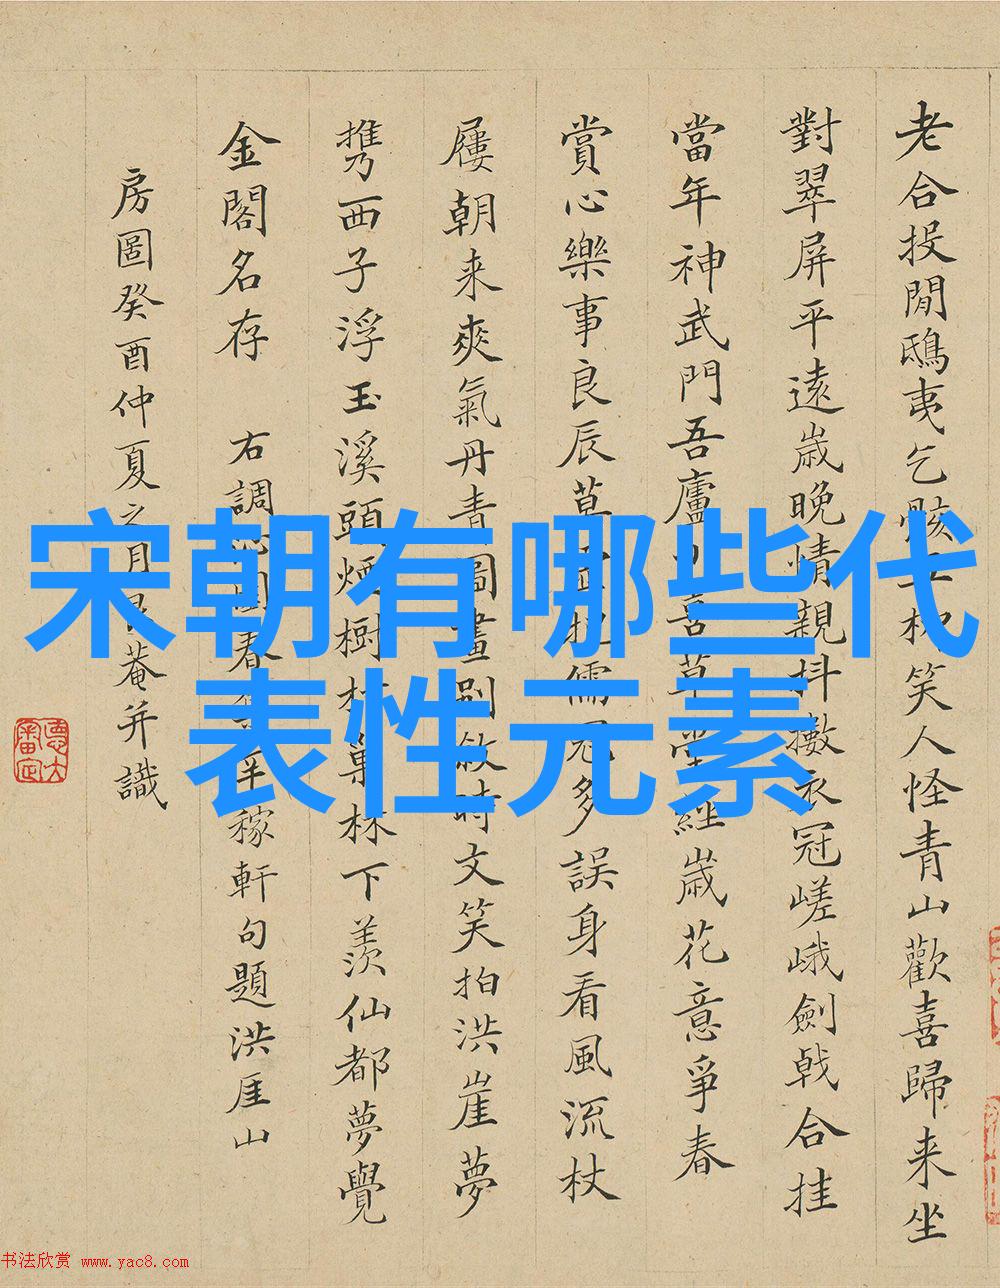 宋朝有哪些代
表性元素
老合投閒鴟夷乞骸笑人怪青山歡喜歸来坐
對翠屏平遠歳晚情親抖擻衣冠嵯峨劍戟合挂
當年神武門吾廬小喜草堂經歳花意爭春
賞心樂事良辰莫儒冠多誤身看風流杖
屨朝来爽氣丹青圖畫别敘時文笑拍洪崖夢
携西子浮玉溪頭煙樹林下羨仙都夢覺
金閣名存 右調沁園春辛稼軒句題洪厓山
房圖癸酉仲夏之月菴并識
书法欣赏 www.yac8.com